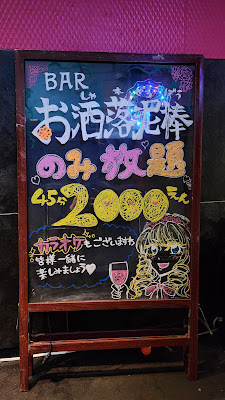 BAR
お洒落泥棒
のみ放題
45分2000えん
カラオケもございます
皆様一緒に
楽しみましょう♡